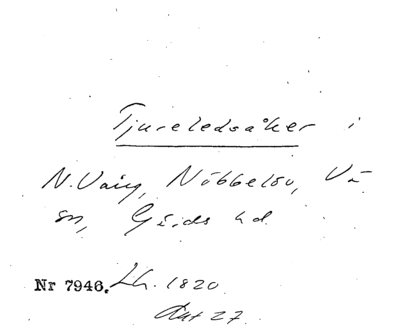 Tjureledsåker i
N. Ving, Nöbbelsv, Vä
sn, Gärds hd.
Nr 7946. Lh. 1820.
Akt 27.